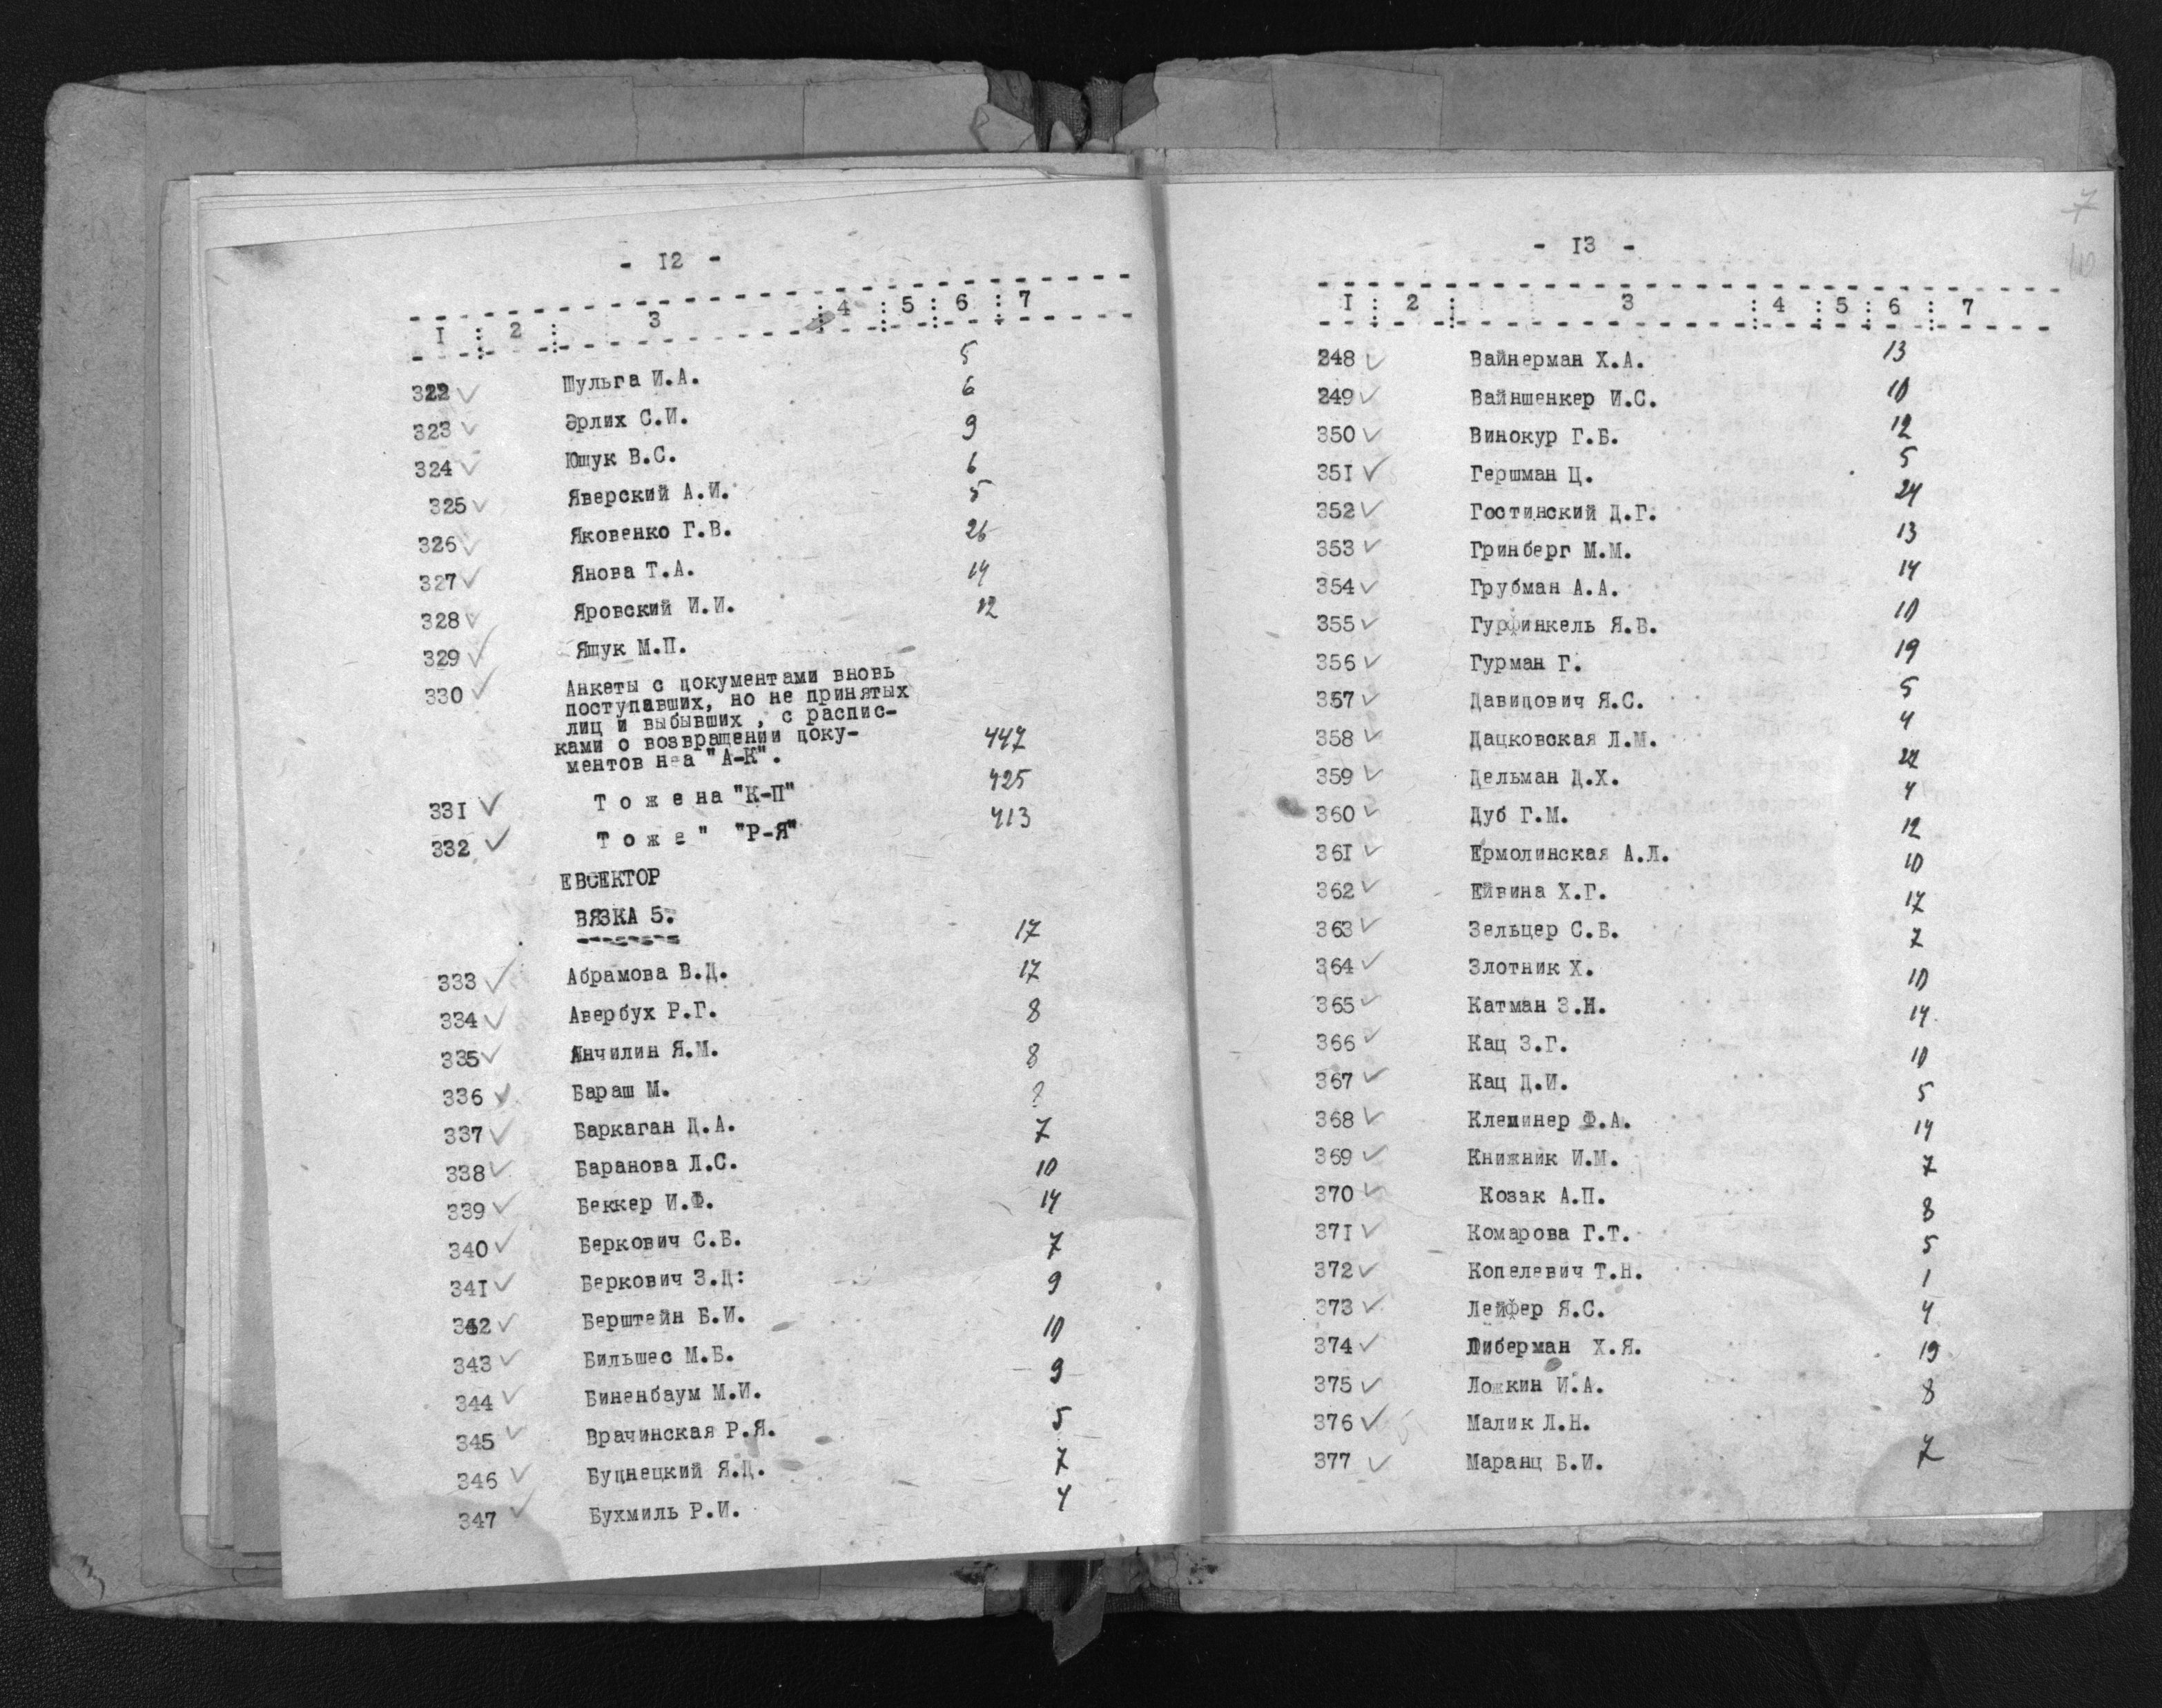 - I2 -
I : 2 : 3 : 4 : 5 : 6 : 7
322 Шульга И.А. 5
323 Эрлих С.И. 6
324 Ющук В.С. 9
325 Яверский А.И. 6
326 Яковенко Г.В. 5
327 Янова Т.А. 26
328 Яровский И.И. 14
329 Ящук М.П. 12
330 Анкеты с документами вновь
поступавших, но не принятых
лиц и выбывших , с распис-
ками о возвращении доку-
ментов неа "А-К". 447
33I Т о ж е на "К-П" 425
332 Т о ж е " "Р-Я" 413
ЕВСЕКТОР
ВЯЗКА 5.
333 Абрамова В.Д. 17
334 Авербух Р.Г. 17
335 Анчилин Я.М. 8
336 Бараш М. 8
337 Баркаган Д.А. ?
338 Баранова Л.С. 7
339 Беккер И.Ф. 10
340 Беркович С.Б. 14
34I Беркович З.Д: 7
342 Берштейн Б.И. 9
343 Бильшес М.Б. 10
344 Биненбаум М.И. 9
345 Врачинская Р.Я. 5
346 Буднецкий Я.Д. 7
347 Бухмиль Р.И. 4
7
- I3 -
I : 2 : 3 : 4 : 5 : 6 : 7
248 Вайнерман Х.А. 13
249 Вайншенкер И.С. 10
350 Винокур Г.Б. 12
35I Гершман Ц. 5
352 Гостинский Д.Г. 24
353 Гринберг М.М. 13
354 Грубман А.А. 14
355 Гурфинкель Я.В. 10
356 Гурман Г. 19
357 Давидович Я.С. 5
358 Дацковская Л.М. 4
359 Дельман Д.Х. 22
360 Дуб Г.М. 4
36I Ермолинская А.Л. 12
362 Ейвина Х.Г. 10
363 Зельцер С.Б. 17
364 Злотник Х. 7
365 Катман З.Н. 10
366 Кац З.Г. 14
367 Кац Д.И. 10
368 Клеминер Ф.А. 5
369 Книжник И.М. 14
370 Козак А.П. 7
37I Комарова Г.Т. 8
372 Копелевич Т.Н. 5
373 Лейфер Я.С. 1
374 Либерман Х.Я. 4
375 Ложкин И.А. 19
376 Малик Л.Н. 8
377 Маранц Б.И. 7